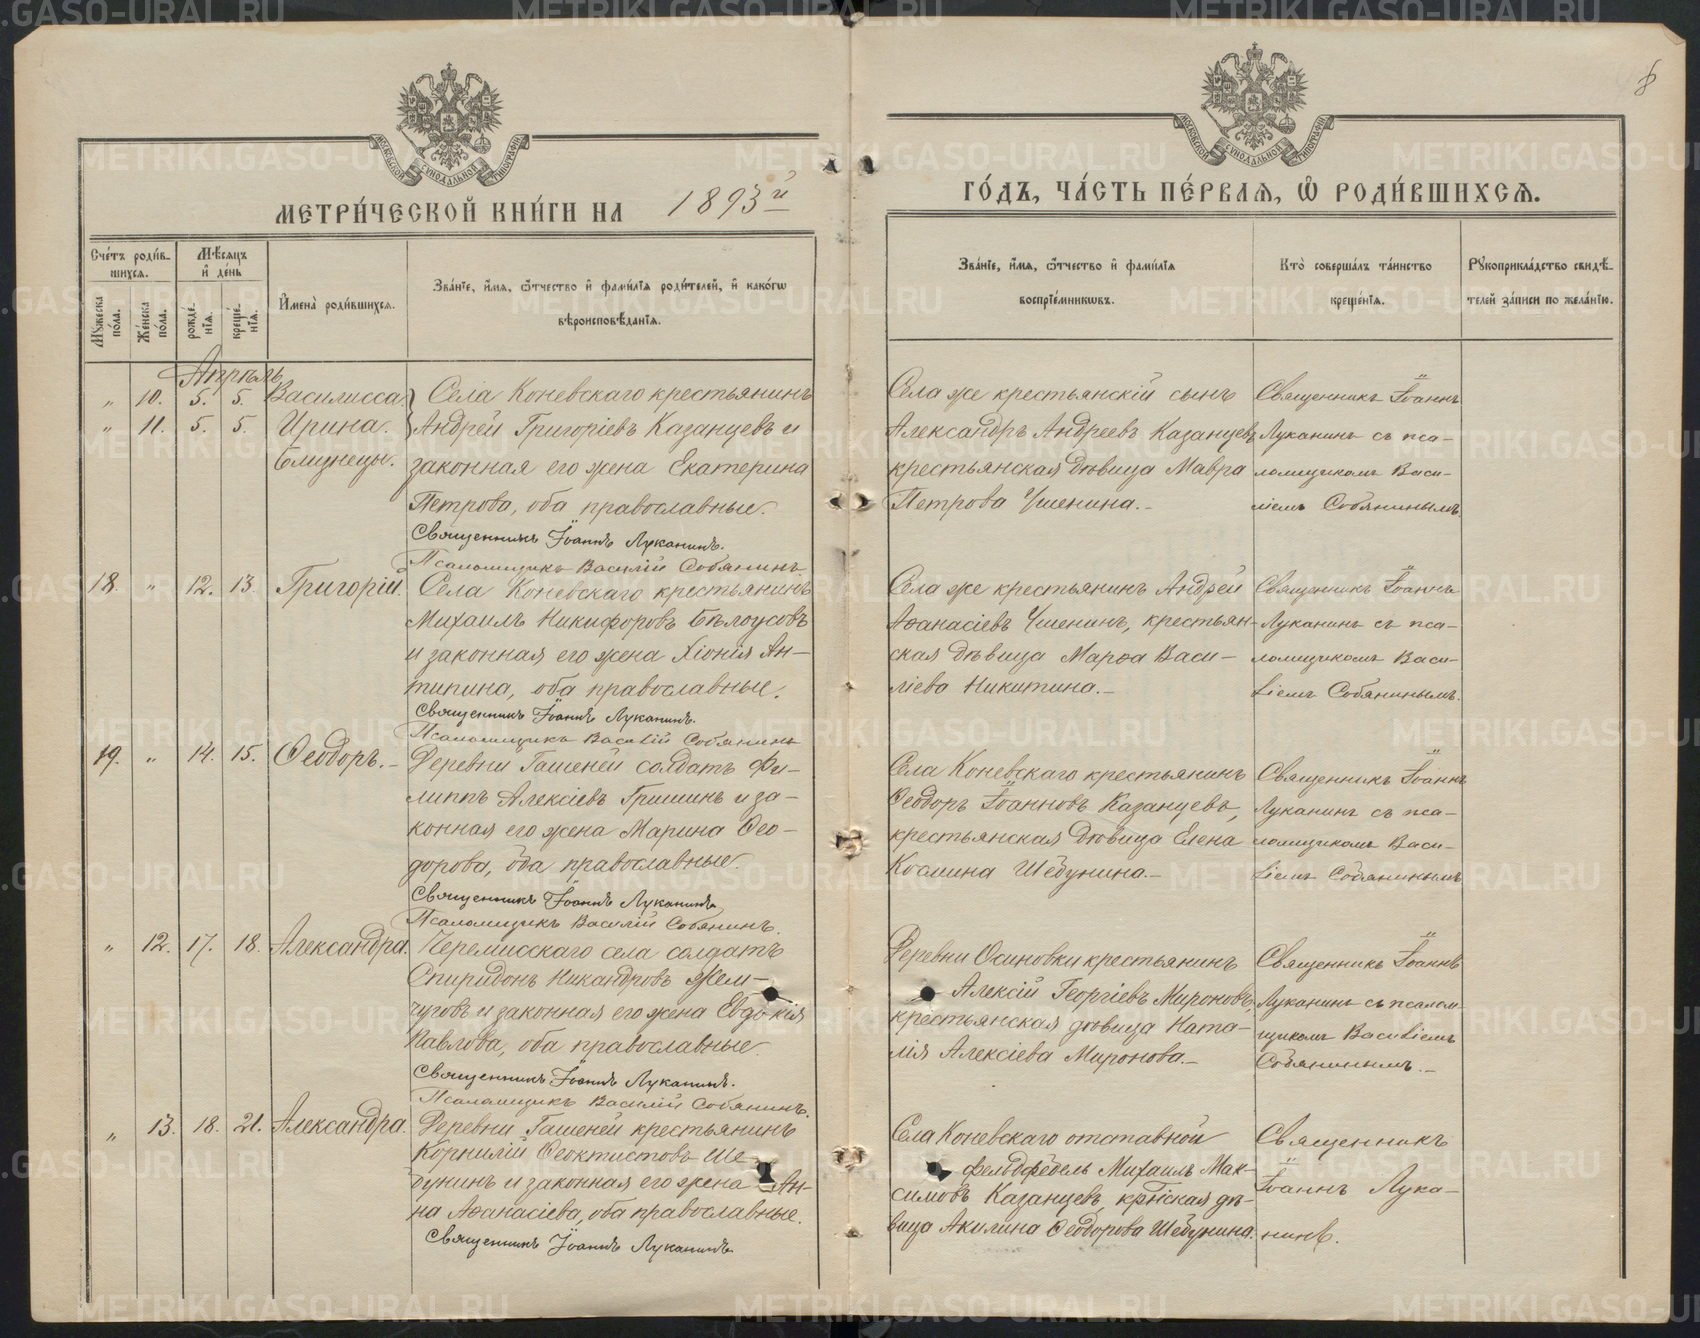 МЕТРИ́ЧЕСКОЙ КНИ́ГИ НА 1893й
ГО́ДЪ, ЧА́СТЬ ПЕ́РВАЯ, Ѽ РОДИ́ВШИХСЯ.
МОСКОВСКОЙ СѴНОДАЛЬНОЙ ТИПОГРАФІИ
МОСКОВСКОЙ СѴНОДАЛЬНОЙ ТИПОГРАФІИ
Сче́тъ роди́в-
шихся.
Мѣ́сяцъ
и҆ де́нь
Мꙋ́жеска
по́ла.
Же́нска
по́ла.
рожде́-
нїя.
креще́-
нїя.
И҆мена̀ роди́вшихся.
Зва́нїе, и҆́мя, ѻ҆́тчество и҆ фами́лїя роди́телей, и҆ како́гѡ
вѣроисповѣ́данїя.
Зва́нїе, и҆́мя, ѻ҆́тчество и҆ фами́лїя
воспрїе́мникѡвъ.
Кто̀ соверша́лъ та́инство
креще́нїя.
Рꙋкоприкла́дство свидѣ́-
телей за́писи по жела́нїю.
Апрѣль
" 10. 5. 5. Василисса. Села Коневскаго крестьянинъ
" 11. 5. 5. Ирина. Андрей Григоріевъ Казанцевъ и
близнецы. законная его жена Екатерина
Петрова, оба православные.
Священникъ Іоаннъ Луканинъ.
Псаломщикъ Василій Собянинъ
Села же крестьянскій сынъ
Александръ Андреевъ Казанцевъ
крестьянская дѣвица Мавра
Петрова Ушенина.
Священникъ Іоаннъ
Луканинъ съ пса-
ломщикомъ Васи-
ліемъ Собянинымъ.
18. " 12. 13. Григорій. Села Коневскаго крестьянинъ
Михаилъ Никифоровъ Бѣлоусовъ
и законная его жена Хіонія Ан-
типина, оба православные.
Священникъ Іоаннъ Луканинъ.
Псаломщикъ Василій Собянинъ
Села же крестьянинъ Андрей
Аѳанасіевъ Ушенинъ, крестьян-
ская дѣвица Марѳа Васи-
ліева Никитина.
Священникъ Іоаннъ
Луканинъ съ пса-
ломщикомъ Васи-
ліемъ Собянинымъ.
19. " 14. 15. Ѳеодоръ. Деревни Гашеней солдатъ Фи-
липпъ Алексіевъ Гришинъ и за-
конная его жена Марина Ѳео-
дорова, оба православные.
Священникъ Іоаннъ Луканинъ.
Псаломщикъ Василій Собянинъ.
Села Коневскаго крестьянинъ
Ѳеодоръ Іоанновъ Казанцевъ,
крестьянская дѣвица Елена
Космина Шебунина.
Священникъ Іоаннъ
Луканинъ съ пса-
ломщикомъ Васи-
ліемъ Собянинымъ
" 12. 17. 18. Александра. Черемисскаго села солдатъ
Спиридонъ Никандровъ Жем-
чуговъ и законная его жена Евдокія
Павлова, оба православные.
Священникъ Іоаннъ Луканинъ.
Псаломщикъ Василій Собянинъ.
Деревни Осиновки крестьянинъ
Алексій Георгіевъ Мироновъ,
крестьянская дѣвица Ната-
лія Алексіева Миронова.
Священникъ Іоаннъ
Луканинъ съ псалом-
щикомъ Василіемъ
Собянинымъ.
" 13. 18. 21. Александра. Деревни Гашеней крестьянинъ
Корнилій Ѳеоктистовъ Ше-
бунинъ и законная его жена Ан-
на Аѳанасіева, оба православные.
Священникъ Іоаннъ Луканинъ
Села Коневскаго отставной
фельдфебель Михаилъ Мак-
симовъ Казанцевъ, кртнская дѣ-
вица Акилина Ѳеодорова Шебунина.
Священникъ
Іоаннъ Лука-
нинъ.
METRIKI.GASO-URAL.RU